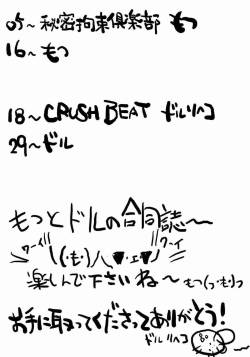 05～秘密拘束倶楽部 もつ
16～もつ
18～CRUSH BEAT ドルリハコ
29～ドル
もつとドルの合同誌～
ワーイ ＼(・も)八▼・ェ▼／ ワーイ
楽しんで下さいね～ もつ(っ・も)っ
お手に取ってくださってありがとう!
ドルリハコ